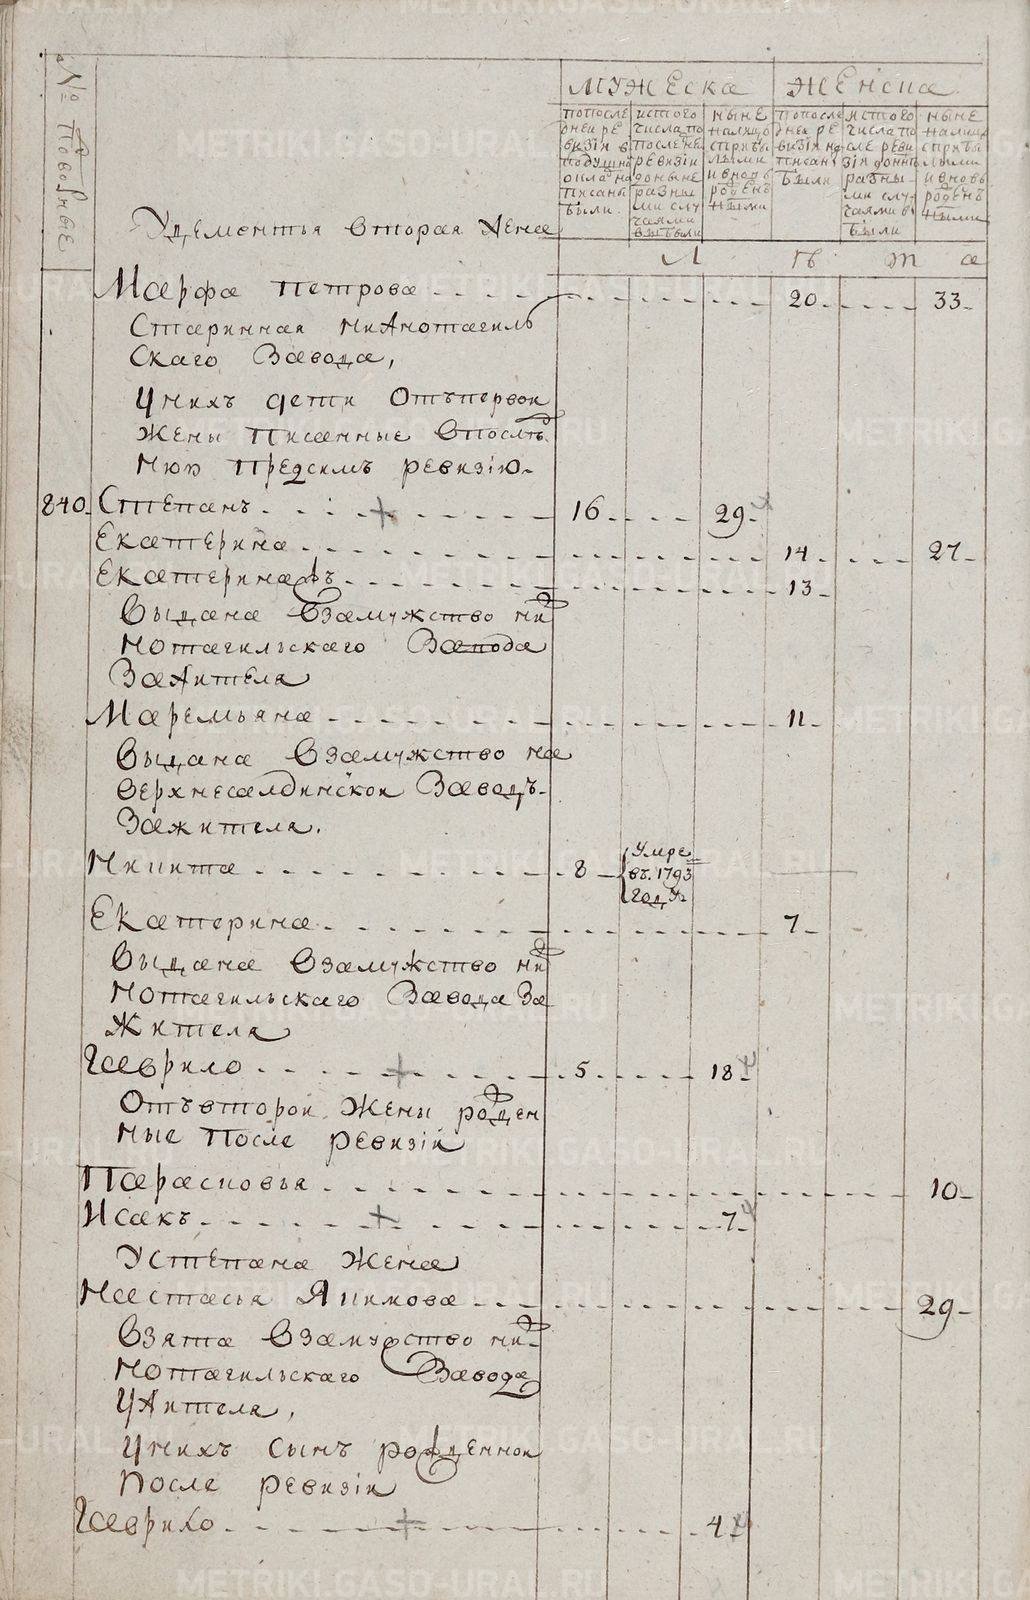 № подворные
Мужеска
Женска
попосле
дней ре
визіи в
подушно
окладна
писаны
были
истого
числа по
последне
ревизіи
доныне
разны
ми слу
чаями
выбыли
ныне
налицо
сприбы
лыми
ивновь
рожден
ными
попосле
дней ре
визіи на
писаны
были
истого
числа по
сле реви
зіи доны
разны
ми слу
чаями в
были
ныне
налицо
сприбы
лыми
ивновь
рожденъ
ными
Удементья вторая жена
Л ѣ т а
Марфа Петрова 20 33
Старинная нижнотагиль
скаго Завода,
Унихъ дети Отъпервои
жены писанные впослѣд
нюю предсимъ ревизію
840 Степанъ 16 29
Екатерина 14 27
Екатеринажъ 13
Выдана взамужство ниж
нотагильскаго Завода
Зажителя
Маремьяна 11
Выдана взамужство на
верхнесалдинскои Заводъ
Зажителя.
Никита 8 Умре
въ 1793
годѣ
Екатерина 7
Выдана взамужство ниж
нотагильскаго Завода За
жителя
Гаврило 5 18
Отъвторои жены рожден
ные после ревизіи
Парасковья 10
Исакъ 7
Устепана жена
Настасья Якимова 29
Взята взамужство ниж
нотагильскаго Завода
Ужителя,
Унихъ сынъ рожденнои
после ревизіи
Гаврило 4
METRIKI.GASO-URAL.RU